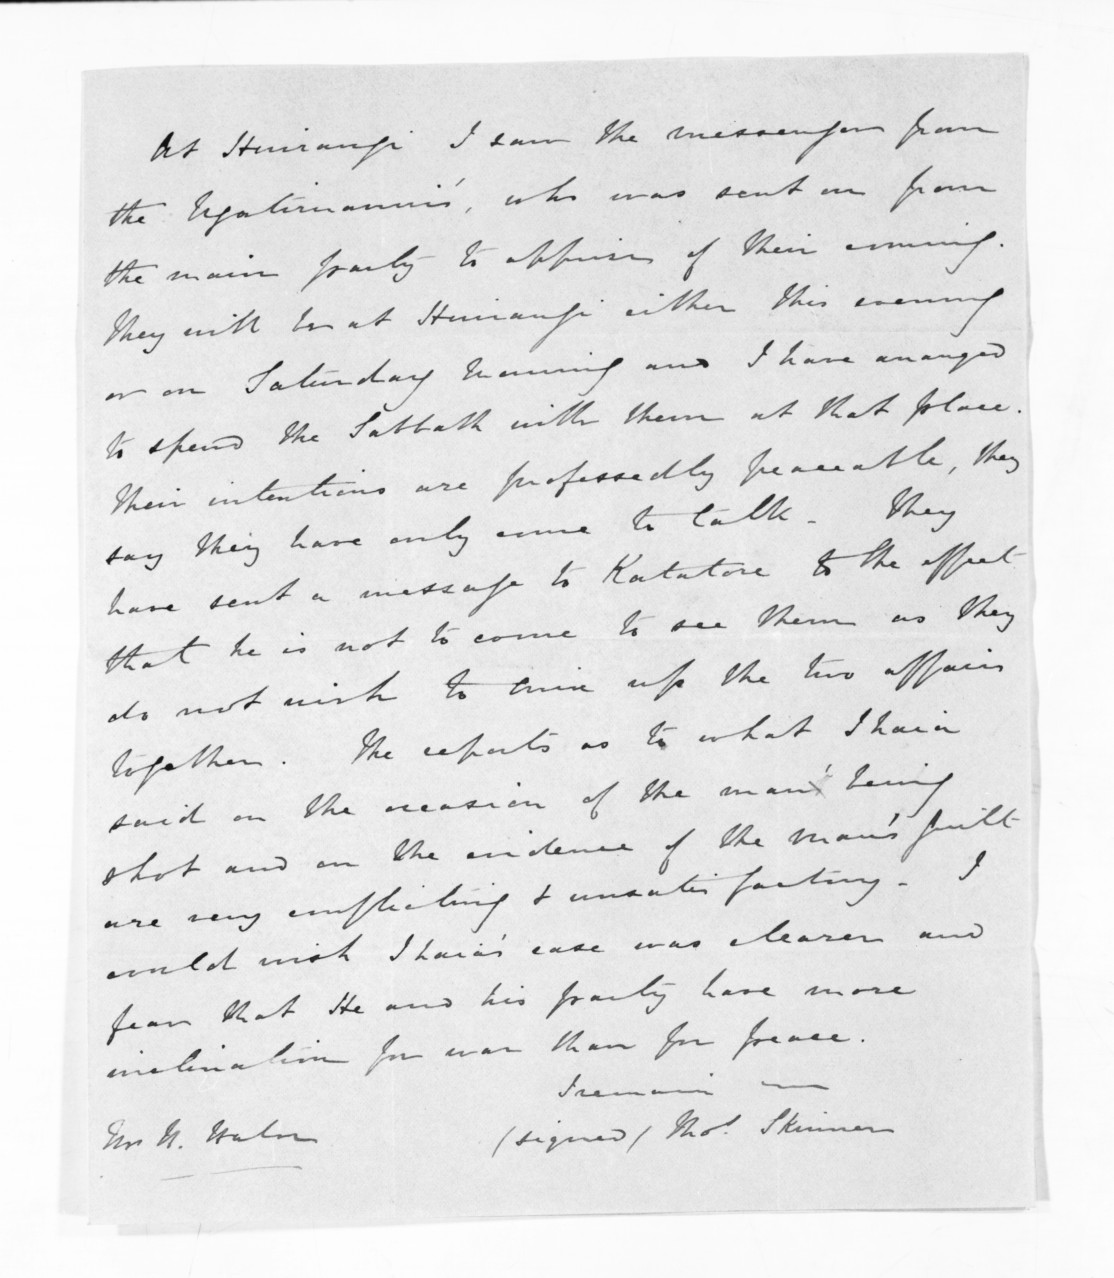 At Huirangi I saw the messenger from
the Ngatiruanui's, who was sent on from
the main party to apprise of their coming.
They will be at Huirangi either this evening
or on Saturday morning and I have arranged
to spend the Sabbath with them at that place.
Their intentions are professedly peaceable, they
say they have only come to talk. They
have sent a message to Katatore to the effect
that he is not to come to see them as they
do not wish to mix up the two affairs
together. The reports as to what Ihaia
said on the occasion of the man being
shot and on the evidence of the man's guilt
are very conflicting & unsatisfactory. I
could wish Ihaia's case was clearer and
fear that He and his party have more
inclination for war than for peace.
I remain
(signed) Thos. Skinner
H. Halse